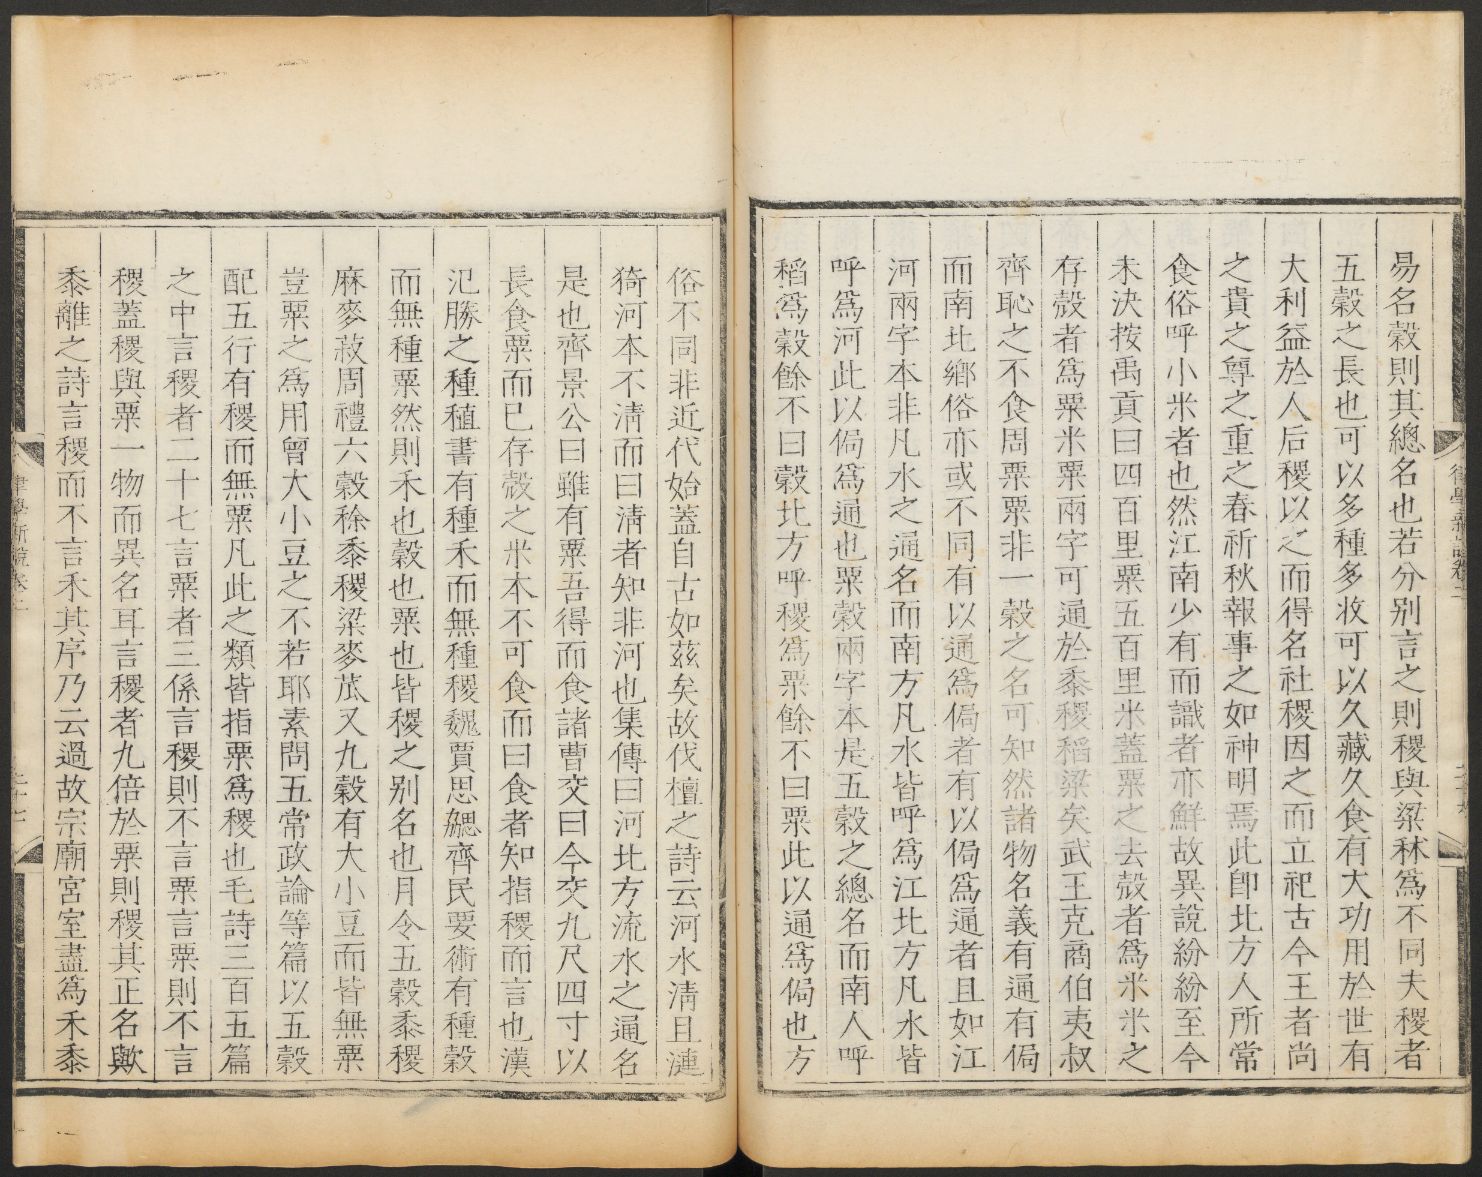 易名穀則其總名也若分别言之則稷與粱秫爲不同夫稷者
五穀之長也可以多種多收可以久藏久食有大功用於世有
大利益於人后稷以之而得名社稷因之而立祀古今王者尚
之貴之尊之重之春祈秋報事之如神明焉此卽北方人所常
食俗呼小米者也然江南少有而識者亦鮮故異說紛紛至今
未決按禹貢曰四百里粟五百里米蓋粟之去殼者爲米米之
存殼者爲粟米粟兩字可通於黍稷稻粱矣武王克商伯夷叔
齊恥之不食周粟粟非一穀之名可知然諸物名義有通有偏
而南北鄉俗亦或不同有以通爲偏者有以偏爲通者且如江
河兩字本非凡水之通名而南方凡水皆呼爲江北方凡水皆
呼爲河此以偏爲通也粟穀兩字本是五穀之總名而南人呼
稻爲穀餘不曰穀北方呼稷爲粟餘不曰粟此以通爲偏也方
俗不同非近代始蓋自古如茲矣故伐檀之詩云河水清且漣
猗河本不清而曰清者知非河也集傳曰河北方流水之通名
是也齊景公曰雖有粟吾得而食諸曹交曰今交九尺四寸以
長食粟而已存殼之米本不可食而曰食者知指稷而言也漢
氾勝之種植書有種禾而無種稷魏賈思勰齊民要術有種穀
而無種粟然則禾也穀也粟也皆稷之别名也月令五穀黍稷
麻麥菽周禮六穀稌黍稷粱麥苽又九穀有大小豆而皆無粟
豈粟之爲用曾大小豆之不若耶素問五常政論等篇以五穀
配五行有稷而無粟凡此之類皆指粟爲稷也毛詩三百五篇
之中言稷者二十七言粟者三係言稷則不言粟言粟則不言
稷蓋稷與粟一物而異名耳言稷者九倍於粟則稷其正名歟
黍離之詩言稷而不言禾其序乃云過故宗廟宮室盡爲禾黍